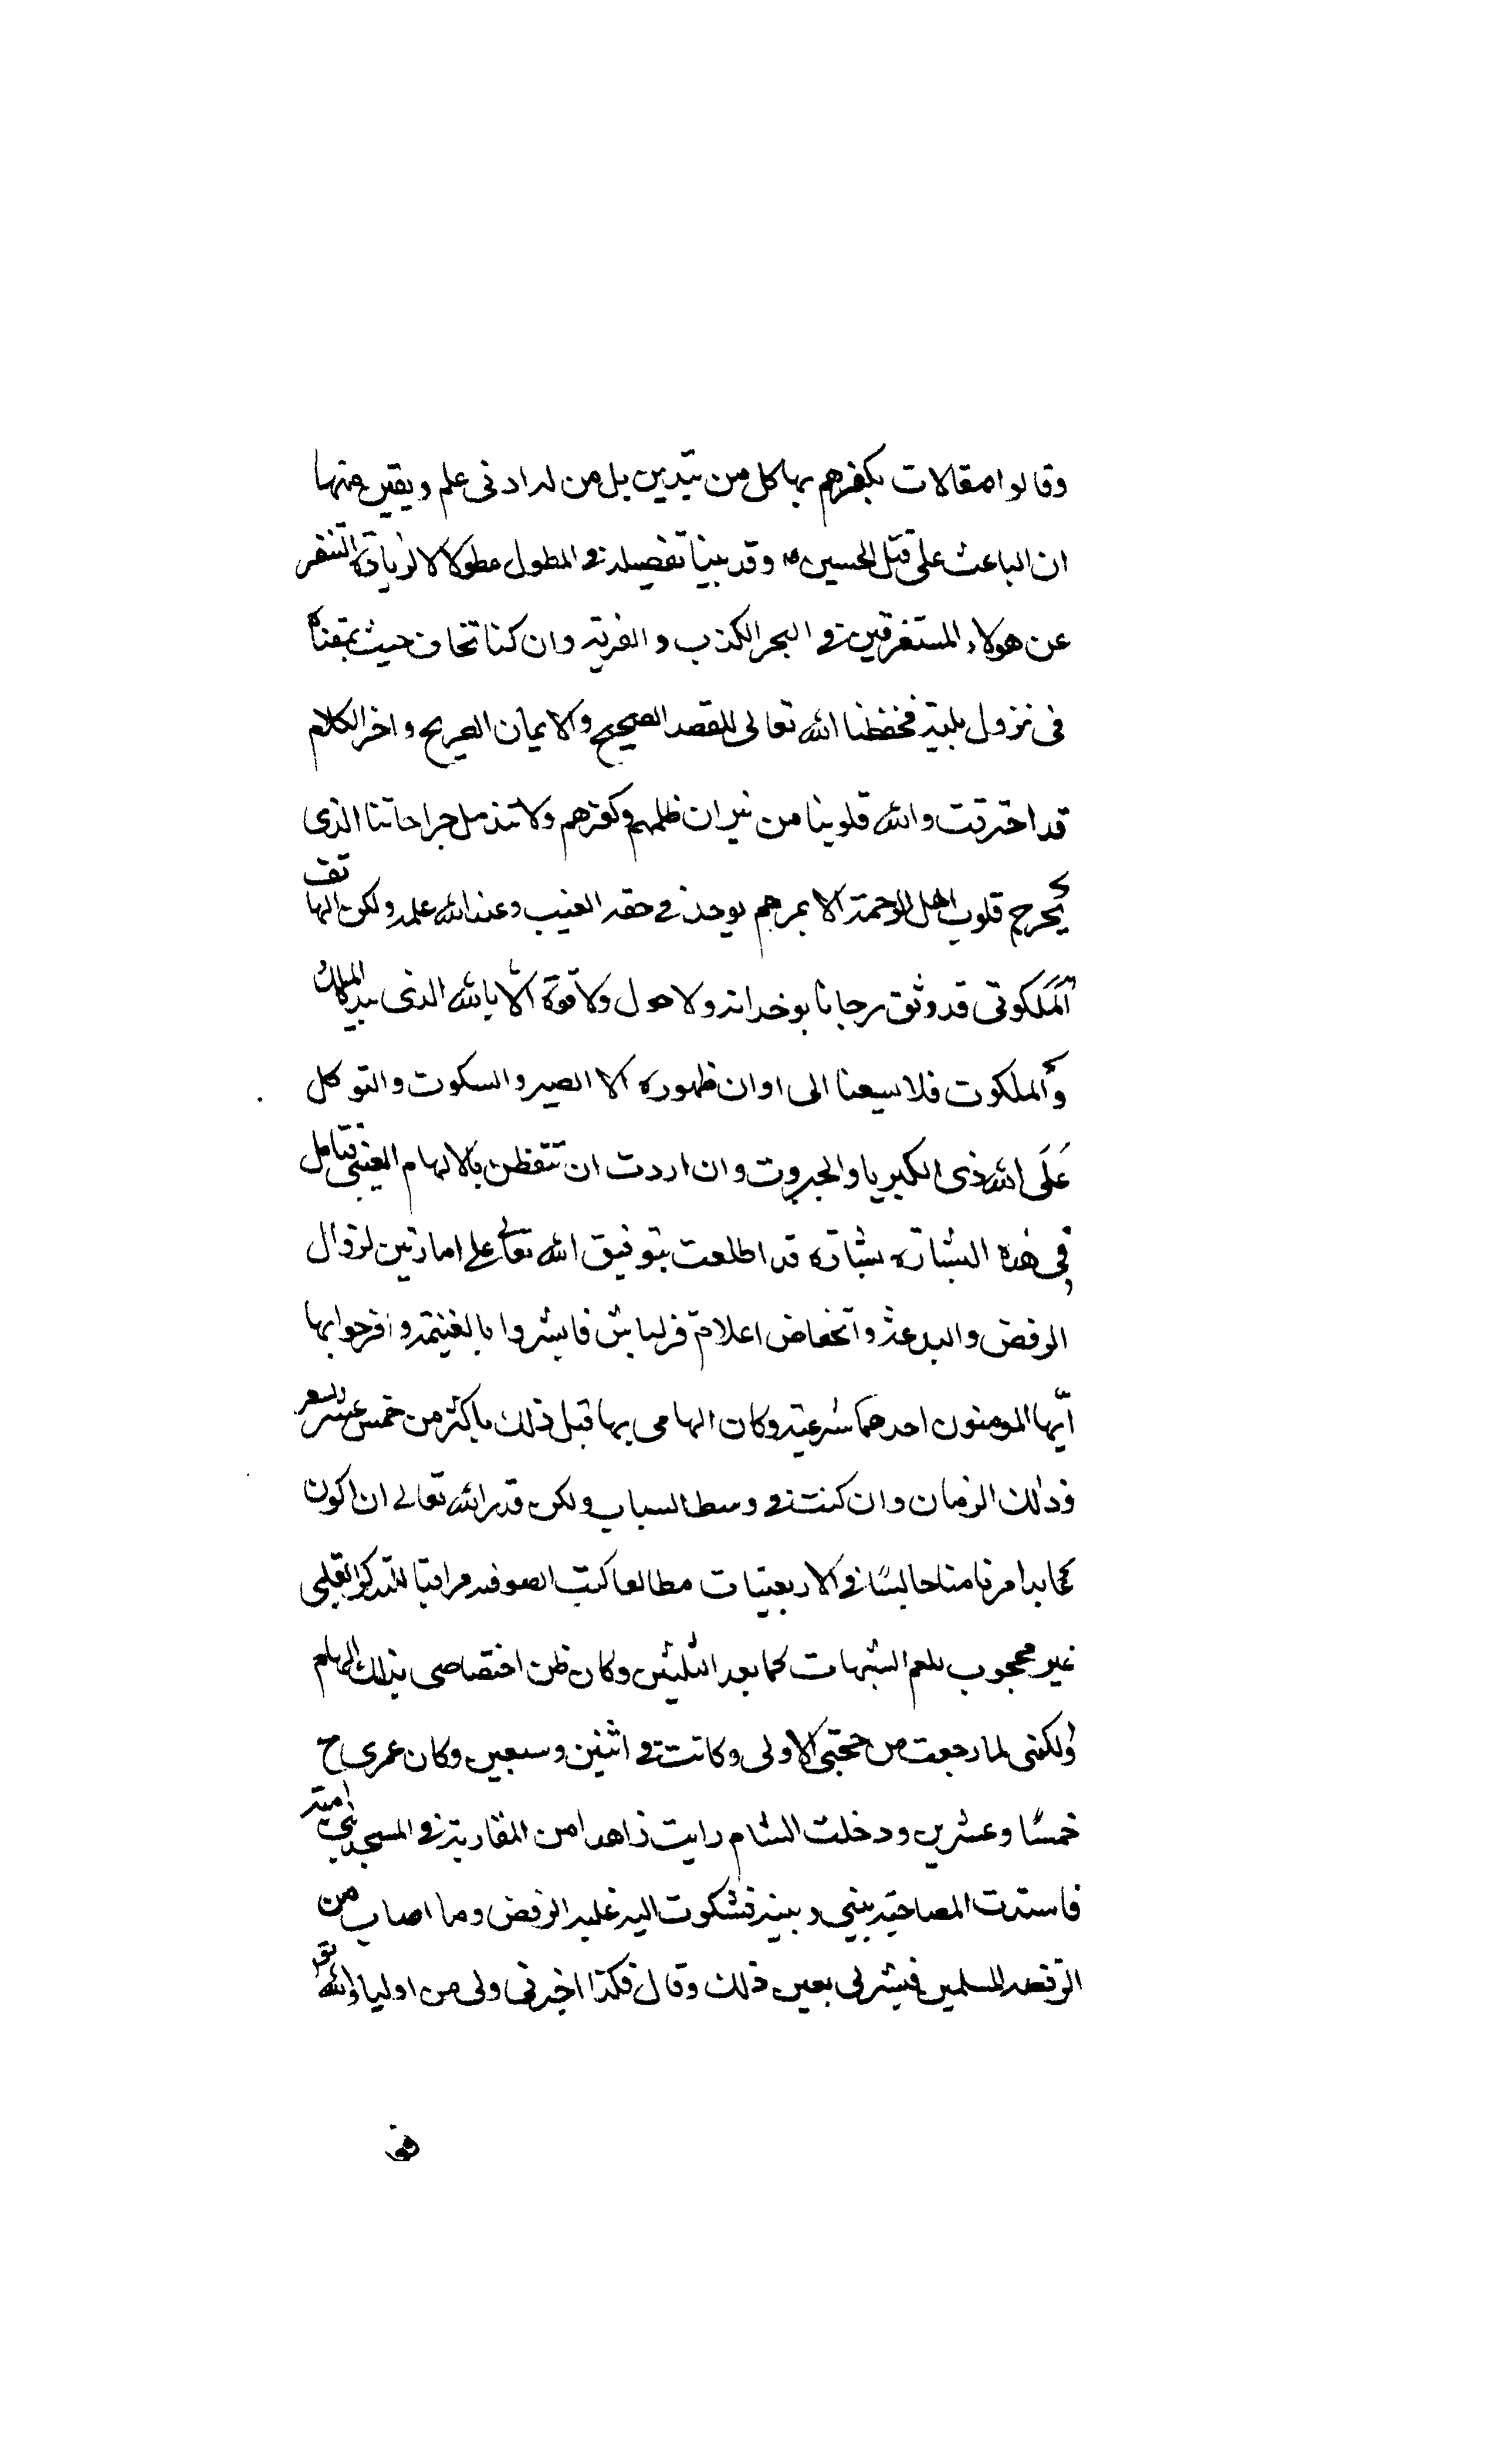 وقالوا مقالات يكفرهم بها كل من تيدين بل من له ادنى علم ويقين منها
ان الباعث على قتل الحسين وقد بينا تفصيله في المطول مطولا لازياد التنفر
عن هولاء المستغرقين في البحر الكذب والفرية وان كنا نخاف حيث
في نزول بلية فحفظنا الله تعالى للقصد الصحيح والايمان الصريح واخر الكلام
قد احترقت والله قلوبنا من نيران ظلمهم وكفرهم ولا تندمل جراحاتنا الذى
يحرج قلوب اهل الرحمة الا بمرهم يوجد في حقه الغيب وعند الله علمه ولكن
الملكوتى قد وثق رجانا ولا حول ولا قوة الا بالله الذى بيده الملك
والملكوت فلا يسعنا الى اوان ظهوره الا الصبر والسكوت والتوكل
على الله ذى الكبريا والجبروت وان اردت ان تتفظن بالالهام الغيبى فتامل
في هذه البشاره بشاره قد اطلعت بتوفيق الله تعالى على امارتين لزوال
الرفض والبدعة وانخفاض اعلام قزلباش فابشروا بالغنيمة وافرحوا بها
ايها المومنون احدهما شرعية وكان الهامى بها قبل ذلك باكثر من خمس عشر
وذلك الزمان وان كنت في وسط الشباب ولكن قدر الله تعالى ان اكون
مجاهدا مرتاضا جالسا في الاربعينيات مطالعا كتب الصوفيه مراقبا
غير محجوب الشبهات كما بعد الثلثين وكان ظن اختصاصى بذلك الالهام
ولكنى لما رجعت من حجتى الاولى وكانت في اثنين وسبعين وكان عمرى ح
خمسا وعشرين ودخلت الشام رايت زاهدا من المغاربة في المسجد بنى امية
المصاحبة بينى وبينه فشكوت اليه غلبه الرفض وما اصاب من
الرفضه المسلمين فبشرلى بعين ذلك وقال هكذا اخبرنى ولى من اولياء الله تع